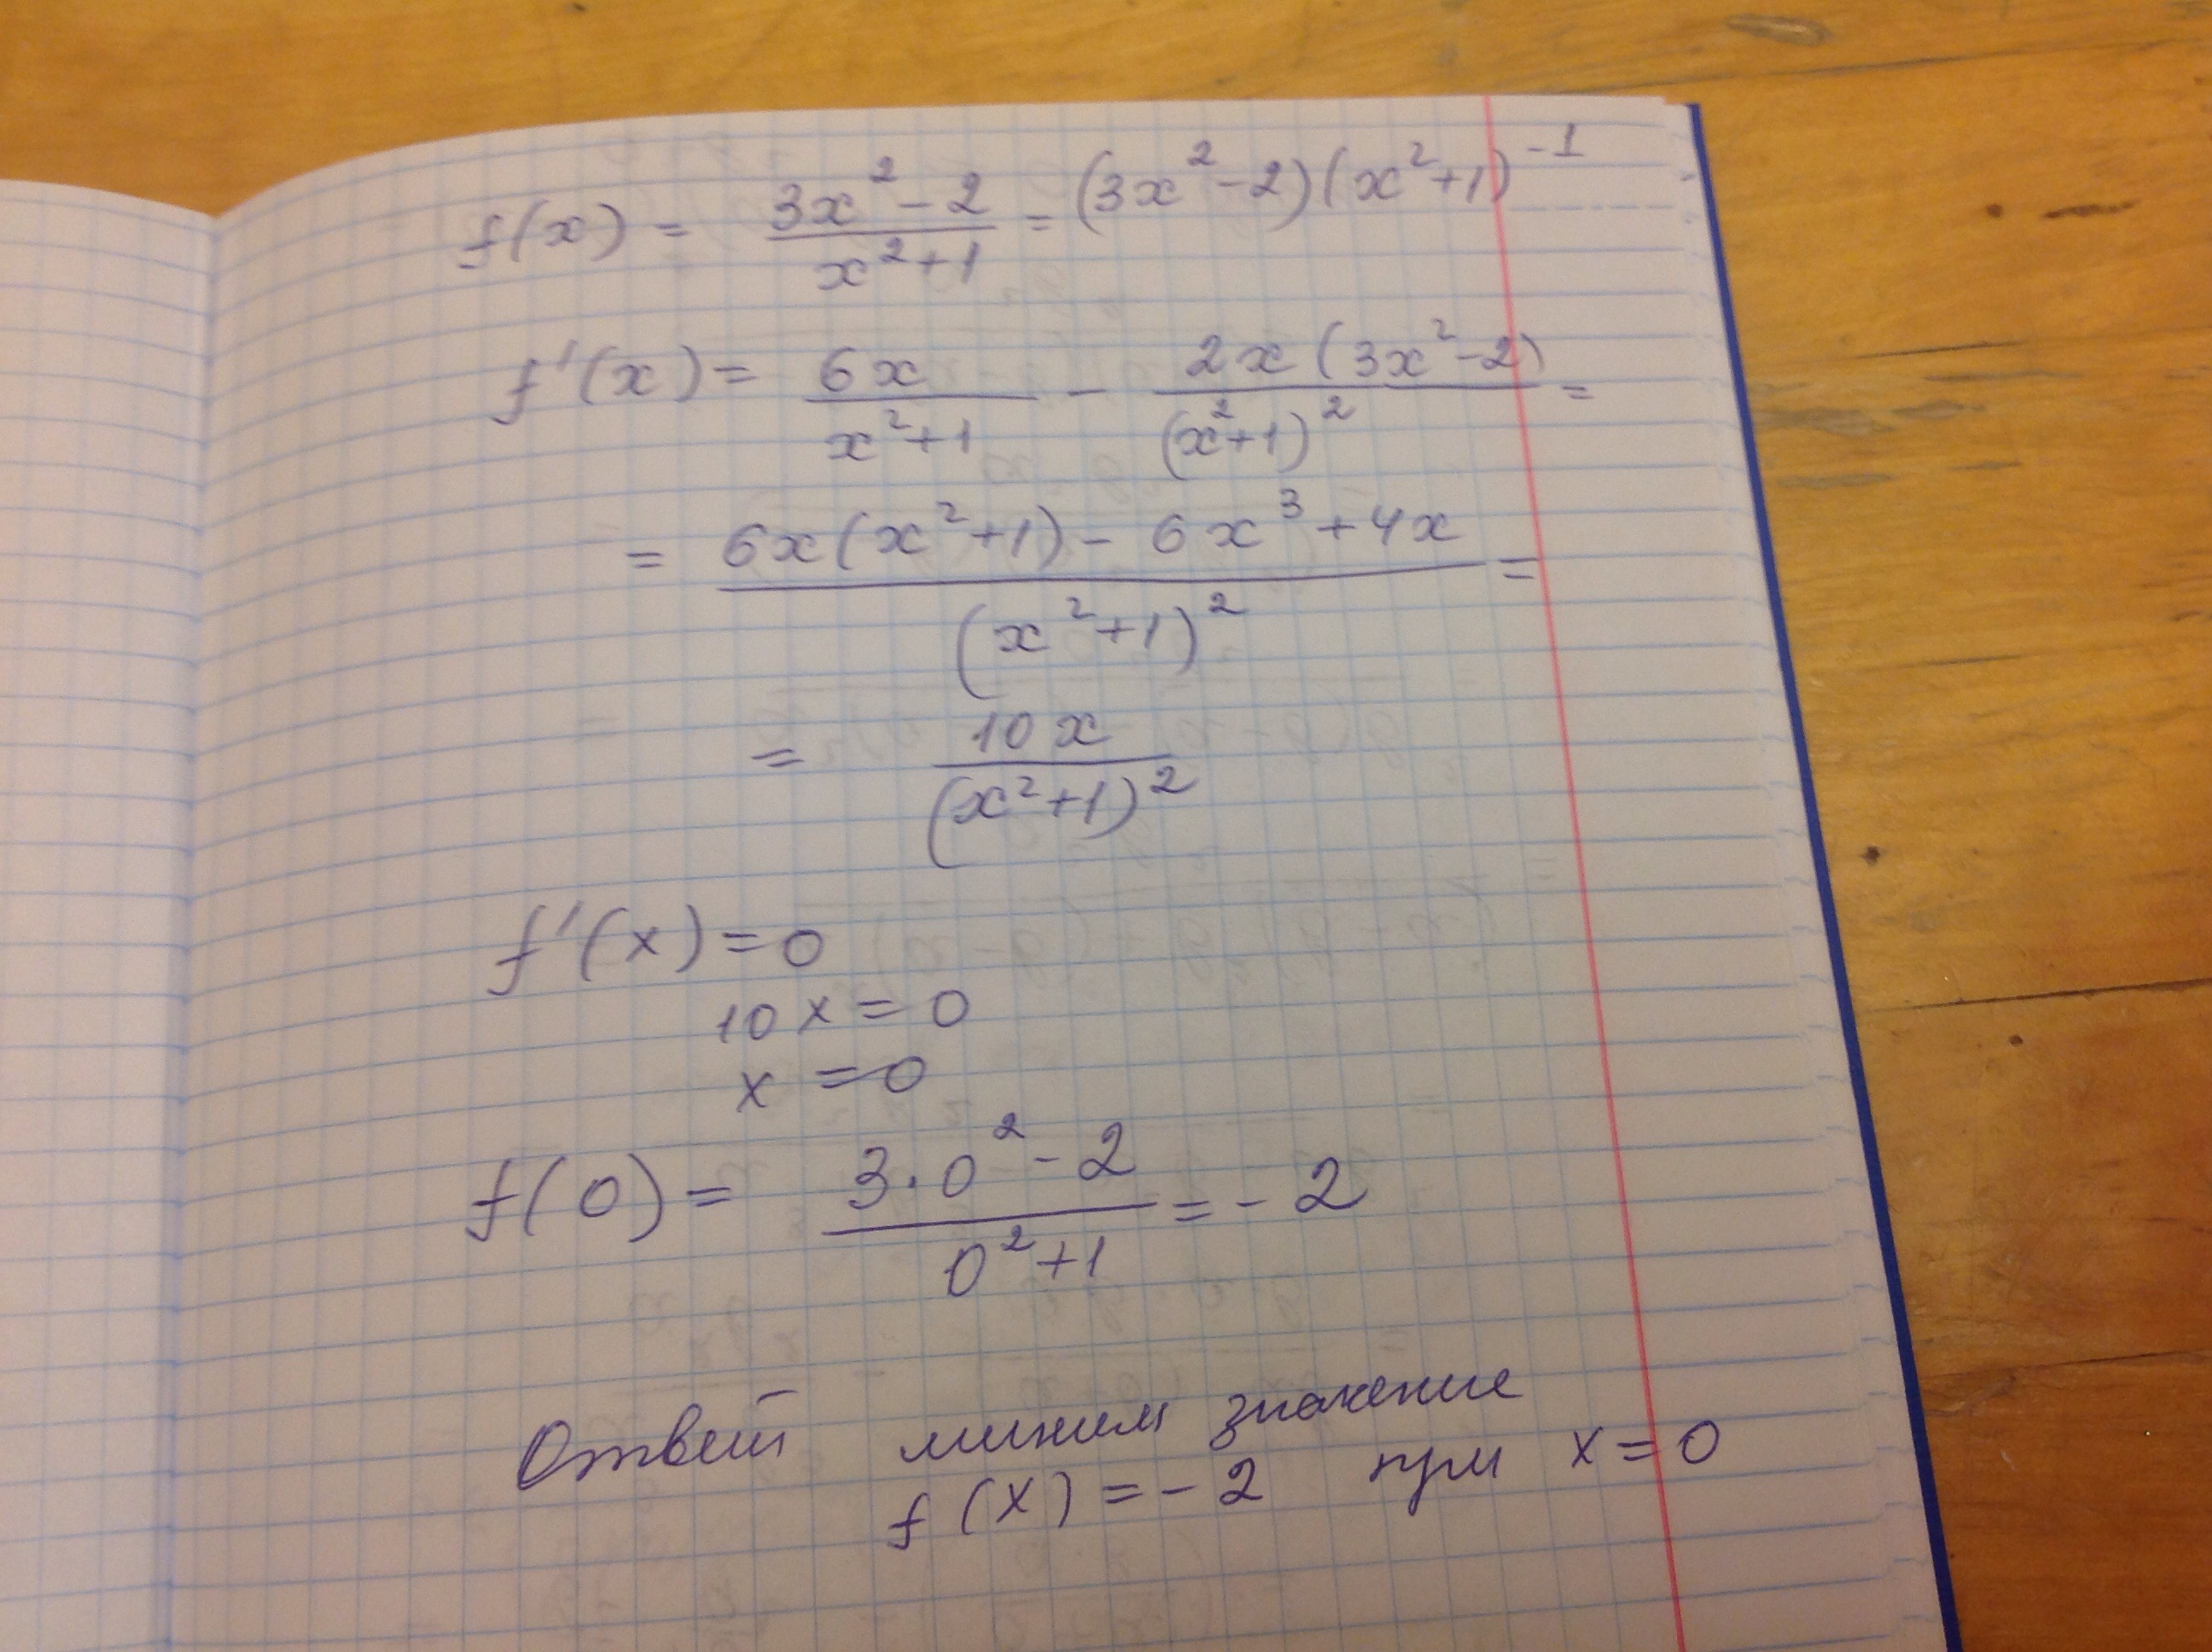 f(x) = \frac{3x^2-2}{x^2+1} = (3x^2-2)(x^2+1)^{-1}
f'(x) = \frac{6x}{x^2+1} - \frac{2x(3x^2-2)}{(x^2+1)^2} =
= \frac{6x(x^2+1) - 6x^3+4x}{(x^2+1)^2} =
= \frac{10x}{(x^2+1)^2}
f'(x) = 0
10x = 0
x = 0
f(0) = \frac{3 \cdot 0^2-2}{0^2+1} = -2
Ответ миним значение
f(x) = -2 при x = 0